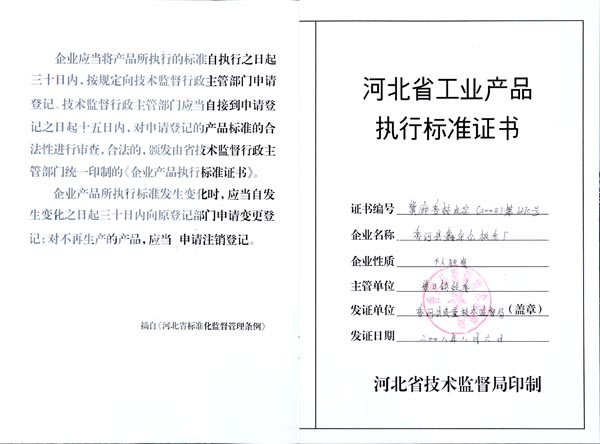 企业应当将产品所执行的标准自执行之日起
三十日内，按规定向技术监督行政主管部门申请
登记。技术监督行政主管部门应当自接到申请登
记之日起十五日内，对申请登记的产品标准的合
法性进行审查，合法的，颁发由省技术监督行政主
管部门统一印制的《企业产品执行标准证书》。
企业产品所执行标准发生变化时，应当自发
生变化之日起三十日内向原登记部门申请变更登
记；对不再生产的产品，应当 申请注销登记。
摘自《河北省标准化监督管理条例》
河北省工业产品
执行标准证书
证书编号
企业名称
企业性质
主管单位
发证单位 香河县质量技术监督局（盖章）
发证日期
河北省技术监督局印制